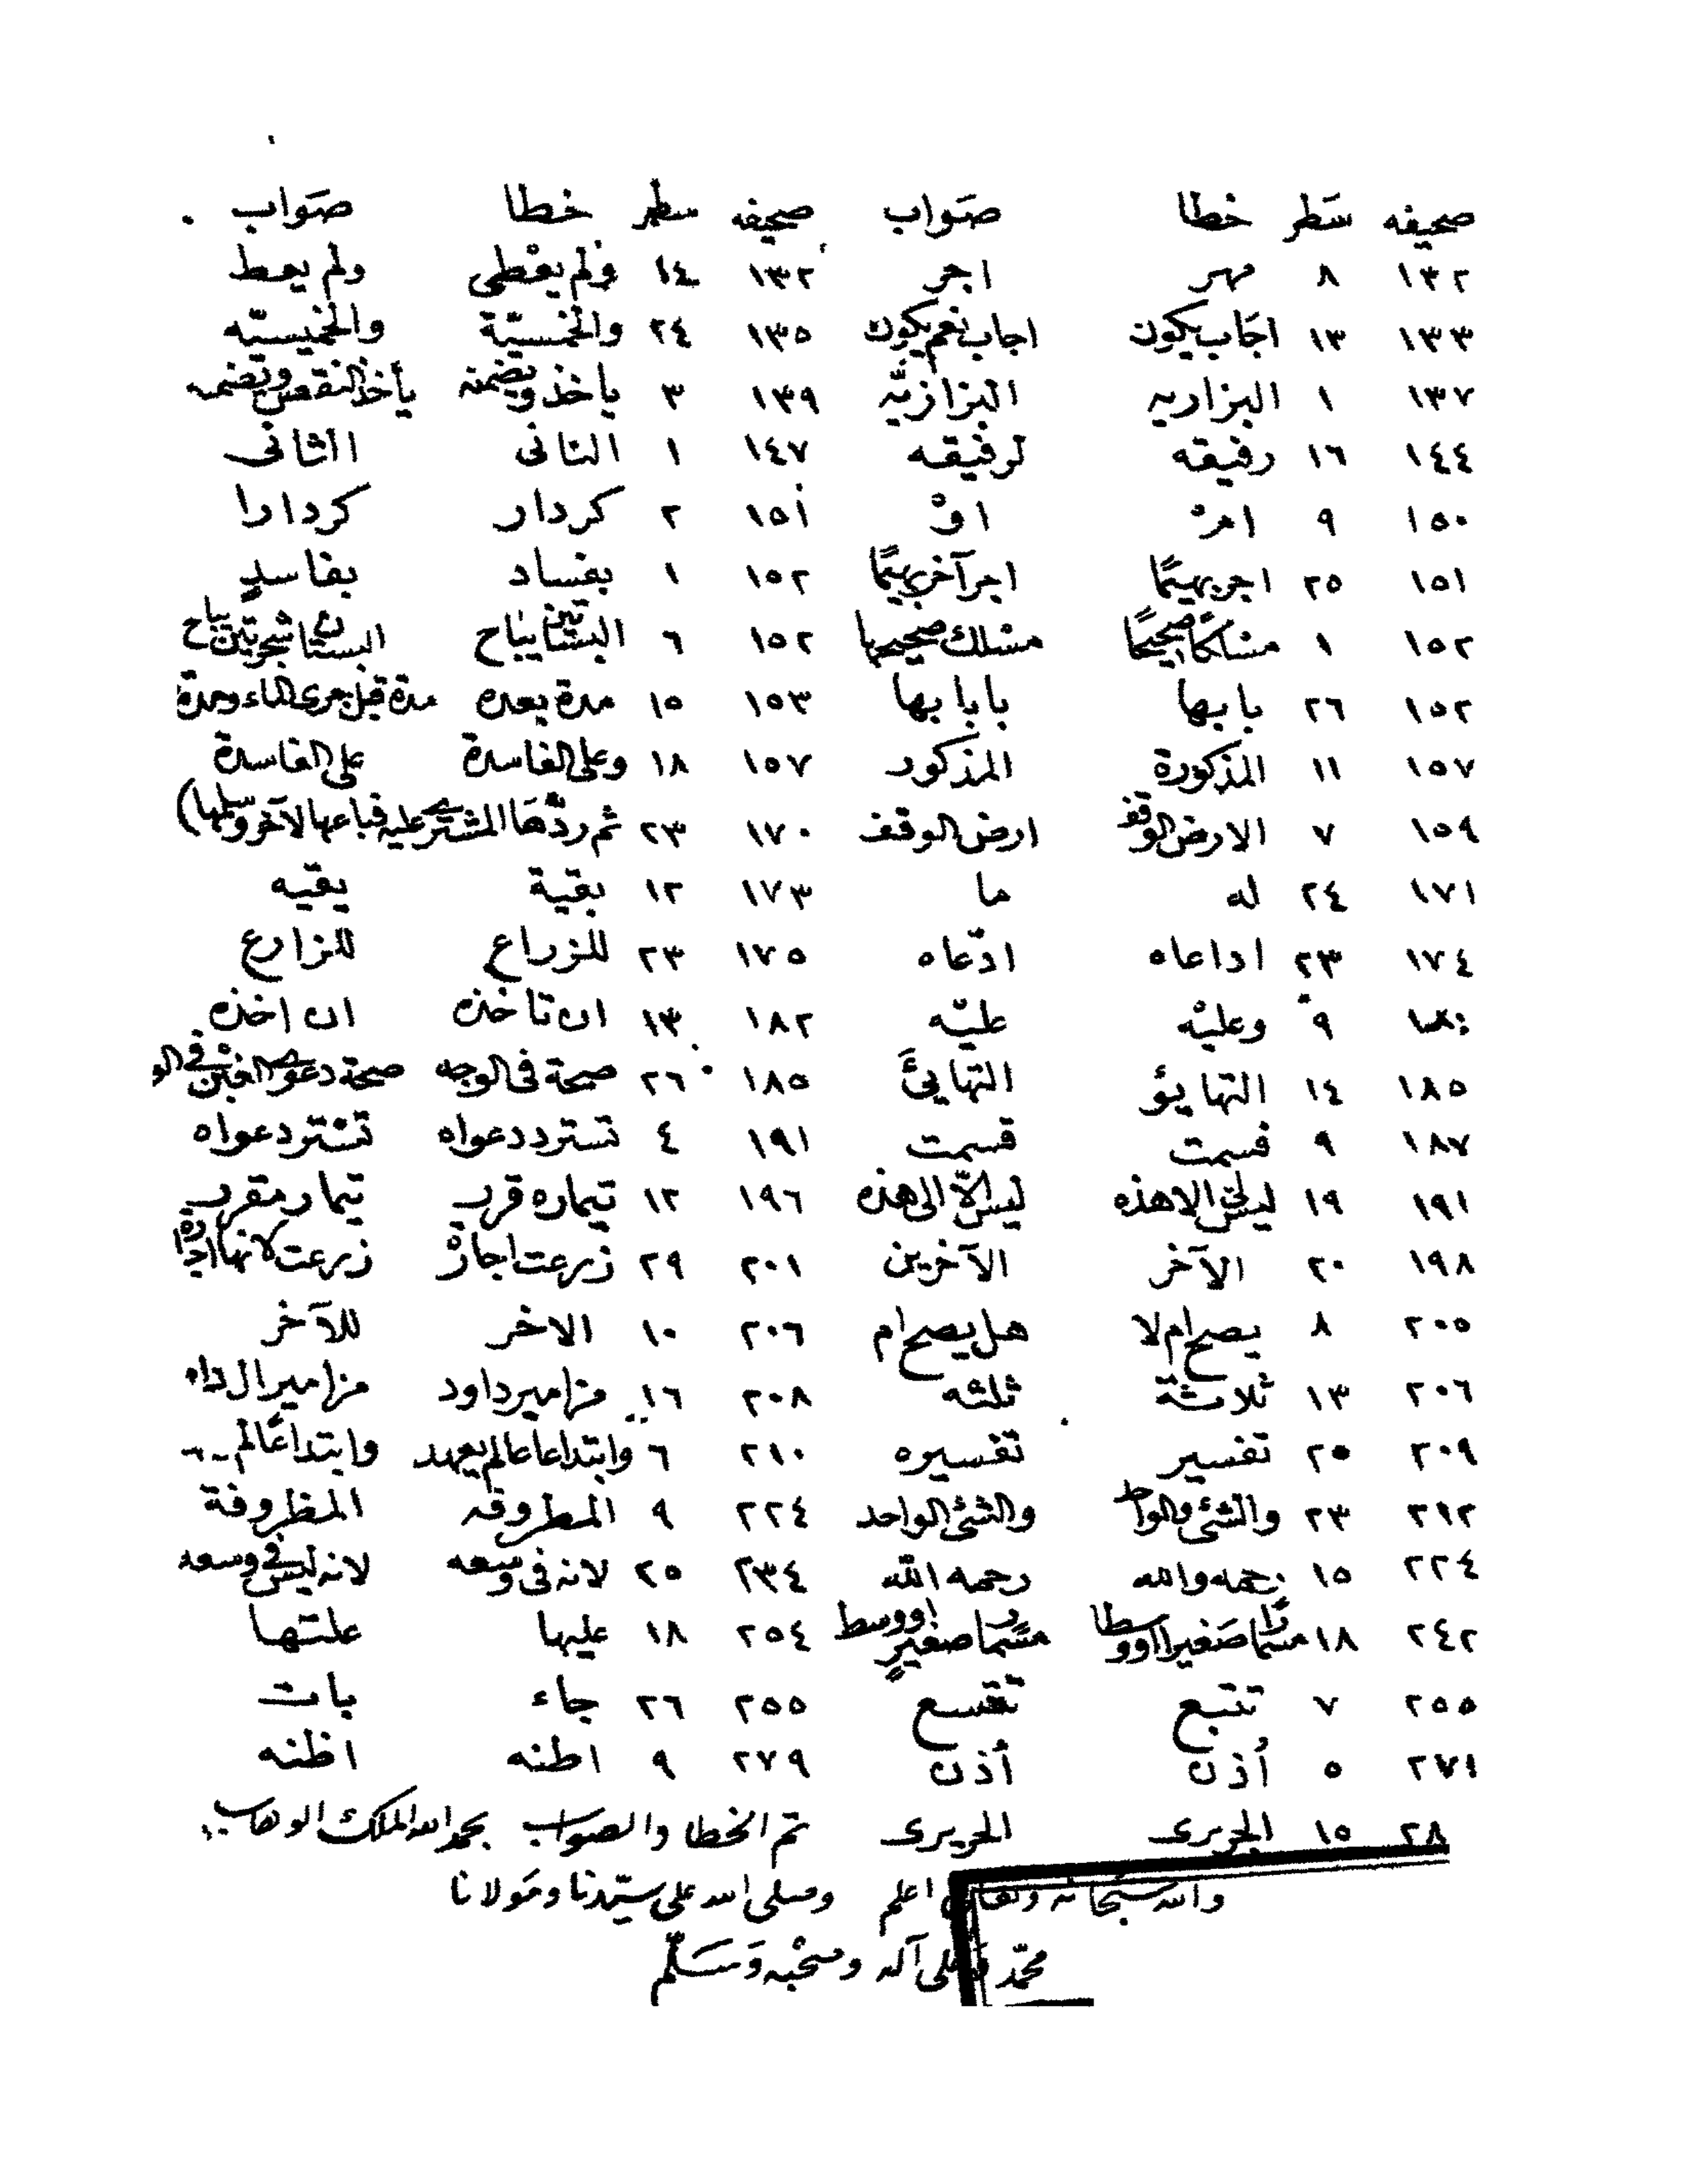 صحيفه سطر خطا صواب صحيفه سطر خطا صواب
١٣٢ ٨ مهر اجر ١٣٢ ١٤ ولم يعطى ولم يعط
١٣٣ ١٣ اجاب يكون اجاب نعم يكون ١٣٥ ٢٤ والخمسيّة والخميسيّه
١٣٧ ١ البزاريه البزازيّه ١٣٩ ٣ ياخذ ويضمنه يأخذ النقص وتضمنه
١٤٤ ١٦ رفيقه لرفيقه ١٤٧ ١ الثانى الثانى
١٥٠ ٩ امْ اوْ ١٥١ ٢ كردار كردارا
١٥١ ٢٥ اجر بهيمًا اجر آخر بهيمًا ١٥٢ ١ بفساد بفاسدٍ
١٥٢ ١ مشلكًا صحيحًا مشلك صحيحها ١٥٢ ٦ البستاتين يباح البستان شجرتين يباح
١٥٢ ٢٦ بابها بابا بها ١٥٣ ١٥ مدة بعده مدة قبل جرى الماء ومدة
١٥٧ ١١ المذكورة المذكور ١٥٧ ١٨ وعلى الفاسدة على الفاسدة
١٥٩ ٧ الارض الوقف ارض الوقف ١٧٠ ٢٣ ثم ردّها المشترى عليه فباعها لآخر وسلمها)
١٧١ ٢٤ له ما ١٧٣ ١٢ بقية يقيه
١٧٤ ٢٣ اداعاه ادّعاه ١٧٥ ٢٣ للزراع للزارع
٩ وعليْه عليْه ١٨٢ ١٣ ان تاخذه ان اخذه
١٨٥ ١٤ التهايؤ التهايئ ١٨٥ ٢٦ صحة فى الوجه صحة دعوى الغبن فى الو
١٨٧ ٩ فسمت قسمت ١٩١ ٤ تسترد دعواه تسترد دعواه
١٩١ ١٩ ليس الاهذه ليس الاّ الى هذه ١٩٦ ١٢ تيماره قرب تيمار مقرب
١٩٨ ٢٠ الآخر الآخرين ٢٠١ ٢٩ زرعت اجازْ زرعت لانها اجارة
٢٠٥ ٨ يصح ام لا هل يصح ام ٢٠٦ ١٠ الاخر للآخر
٢٠٦ ١٣ ثلاثة ثلثه ٢٠٨ ١٦ مزامير داود مزامير ال داو
٢٠٩ ٢٥ تفسير تفسيره ٢١٠ ٦ وابتداعا عالم يعهد وابتداعًالم
٢١٢ ٢٣ والشئ والواحد والشئ الواحد ٢٢٤ ٩ المطروقه المظروفة
٢٢٤ ١٥ رحمه والله رحمه الله ٢٣٤ ٢٥ لانه فى وسعه لانه ليس فى وسعه
٢٤٢ ١٨ صغيرا او وسطا صغيرٍ او وسط ٢٥٤ ١٨ عليها علتها
٢٥٥ ٧ تتبع تقسع ٢٥٥ ٢٦ جاء بات
٢٧١ ٥ أذن أذن ٢٧٩ ٩ اطنه اظنه
٢٨ ١٥ الجريرى الحريرى تم الخطا والصواب بحمد الله الملك الوهاب
والله سبحانه وتعالى اعلم وصلى الله على سيّدنا ومولانا
محمّد وعلى آله وصحْبه وَسَلّم